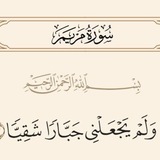 سُورَةُ مَرْيَمَ
بِسْمِ اللَّهِ الرَّحْمَٰنِ الرَّحِيمِ
وَلَمْ يَجْعَلْنِي جَبَّارًا شَقِيًّا